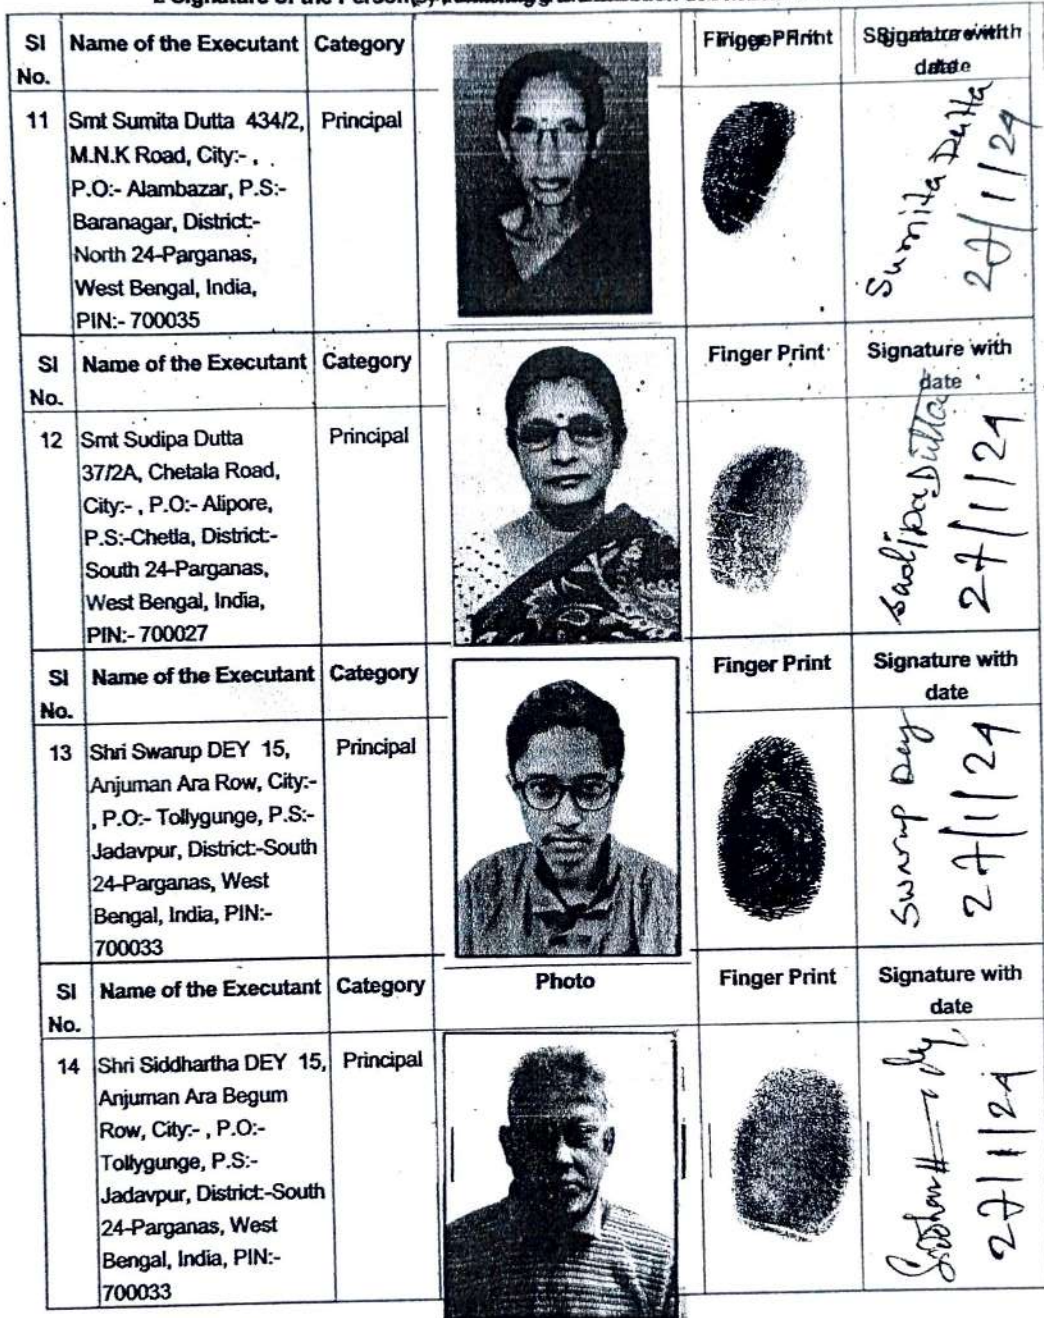 Signature of the Person(s)
Sl Name of the Executant Category Finger Print Signature with
No. date
11 Smt Sumita Dutta 434/2, Principal
M.N.K Road, City:- ,
P.O:- Alambazar, P.S:-
Baranagar, District:-
North 24-Parganas,
West Bengal, India,
PIN:- 700035
Sumita Dutta
27/1/24
Sl Name of the Executant Category Finger Print Signature with
No. date
12 Smt Sudipa Dutta Principal
37/2A, Chetala Road,
City:- , P.O:- Alipore,
P.S:-Chetla, District:-
South 24-Parganas,
West Bengal, India,
PIN:- 700027
Sudipa Dutta
27/1/24
Sl Name of the Executant Category Finger Print Signature with
No. date
13 Shri Swarup DEY 15, Principal
Anjuman Ara Row, City:-
, P.O:- Tollygunge, P.S:-
Jadavpur, District:-South
24-Parganas, West
Bengal, India, PIN:-
700033
Swarup Dey
27/1/24
Sl Name of the Executant Category Photo Finger Print Signature with
No. date
14 Shri Siddhartha DEY 15, Principal
Anjuman Ara Begum
Row, City:- , P.O:-
Tollygunge, P.S:-
Jadavpur, District:-South
24-Parganas, West
Bengal, India, PIN:-
700033
27/1/24